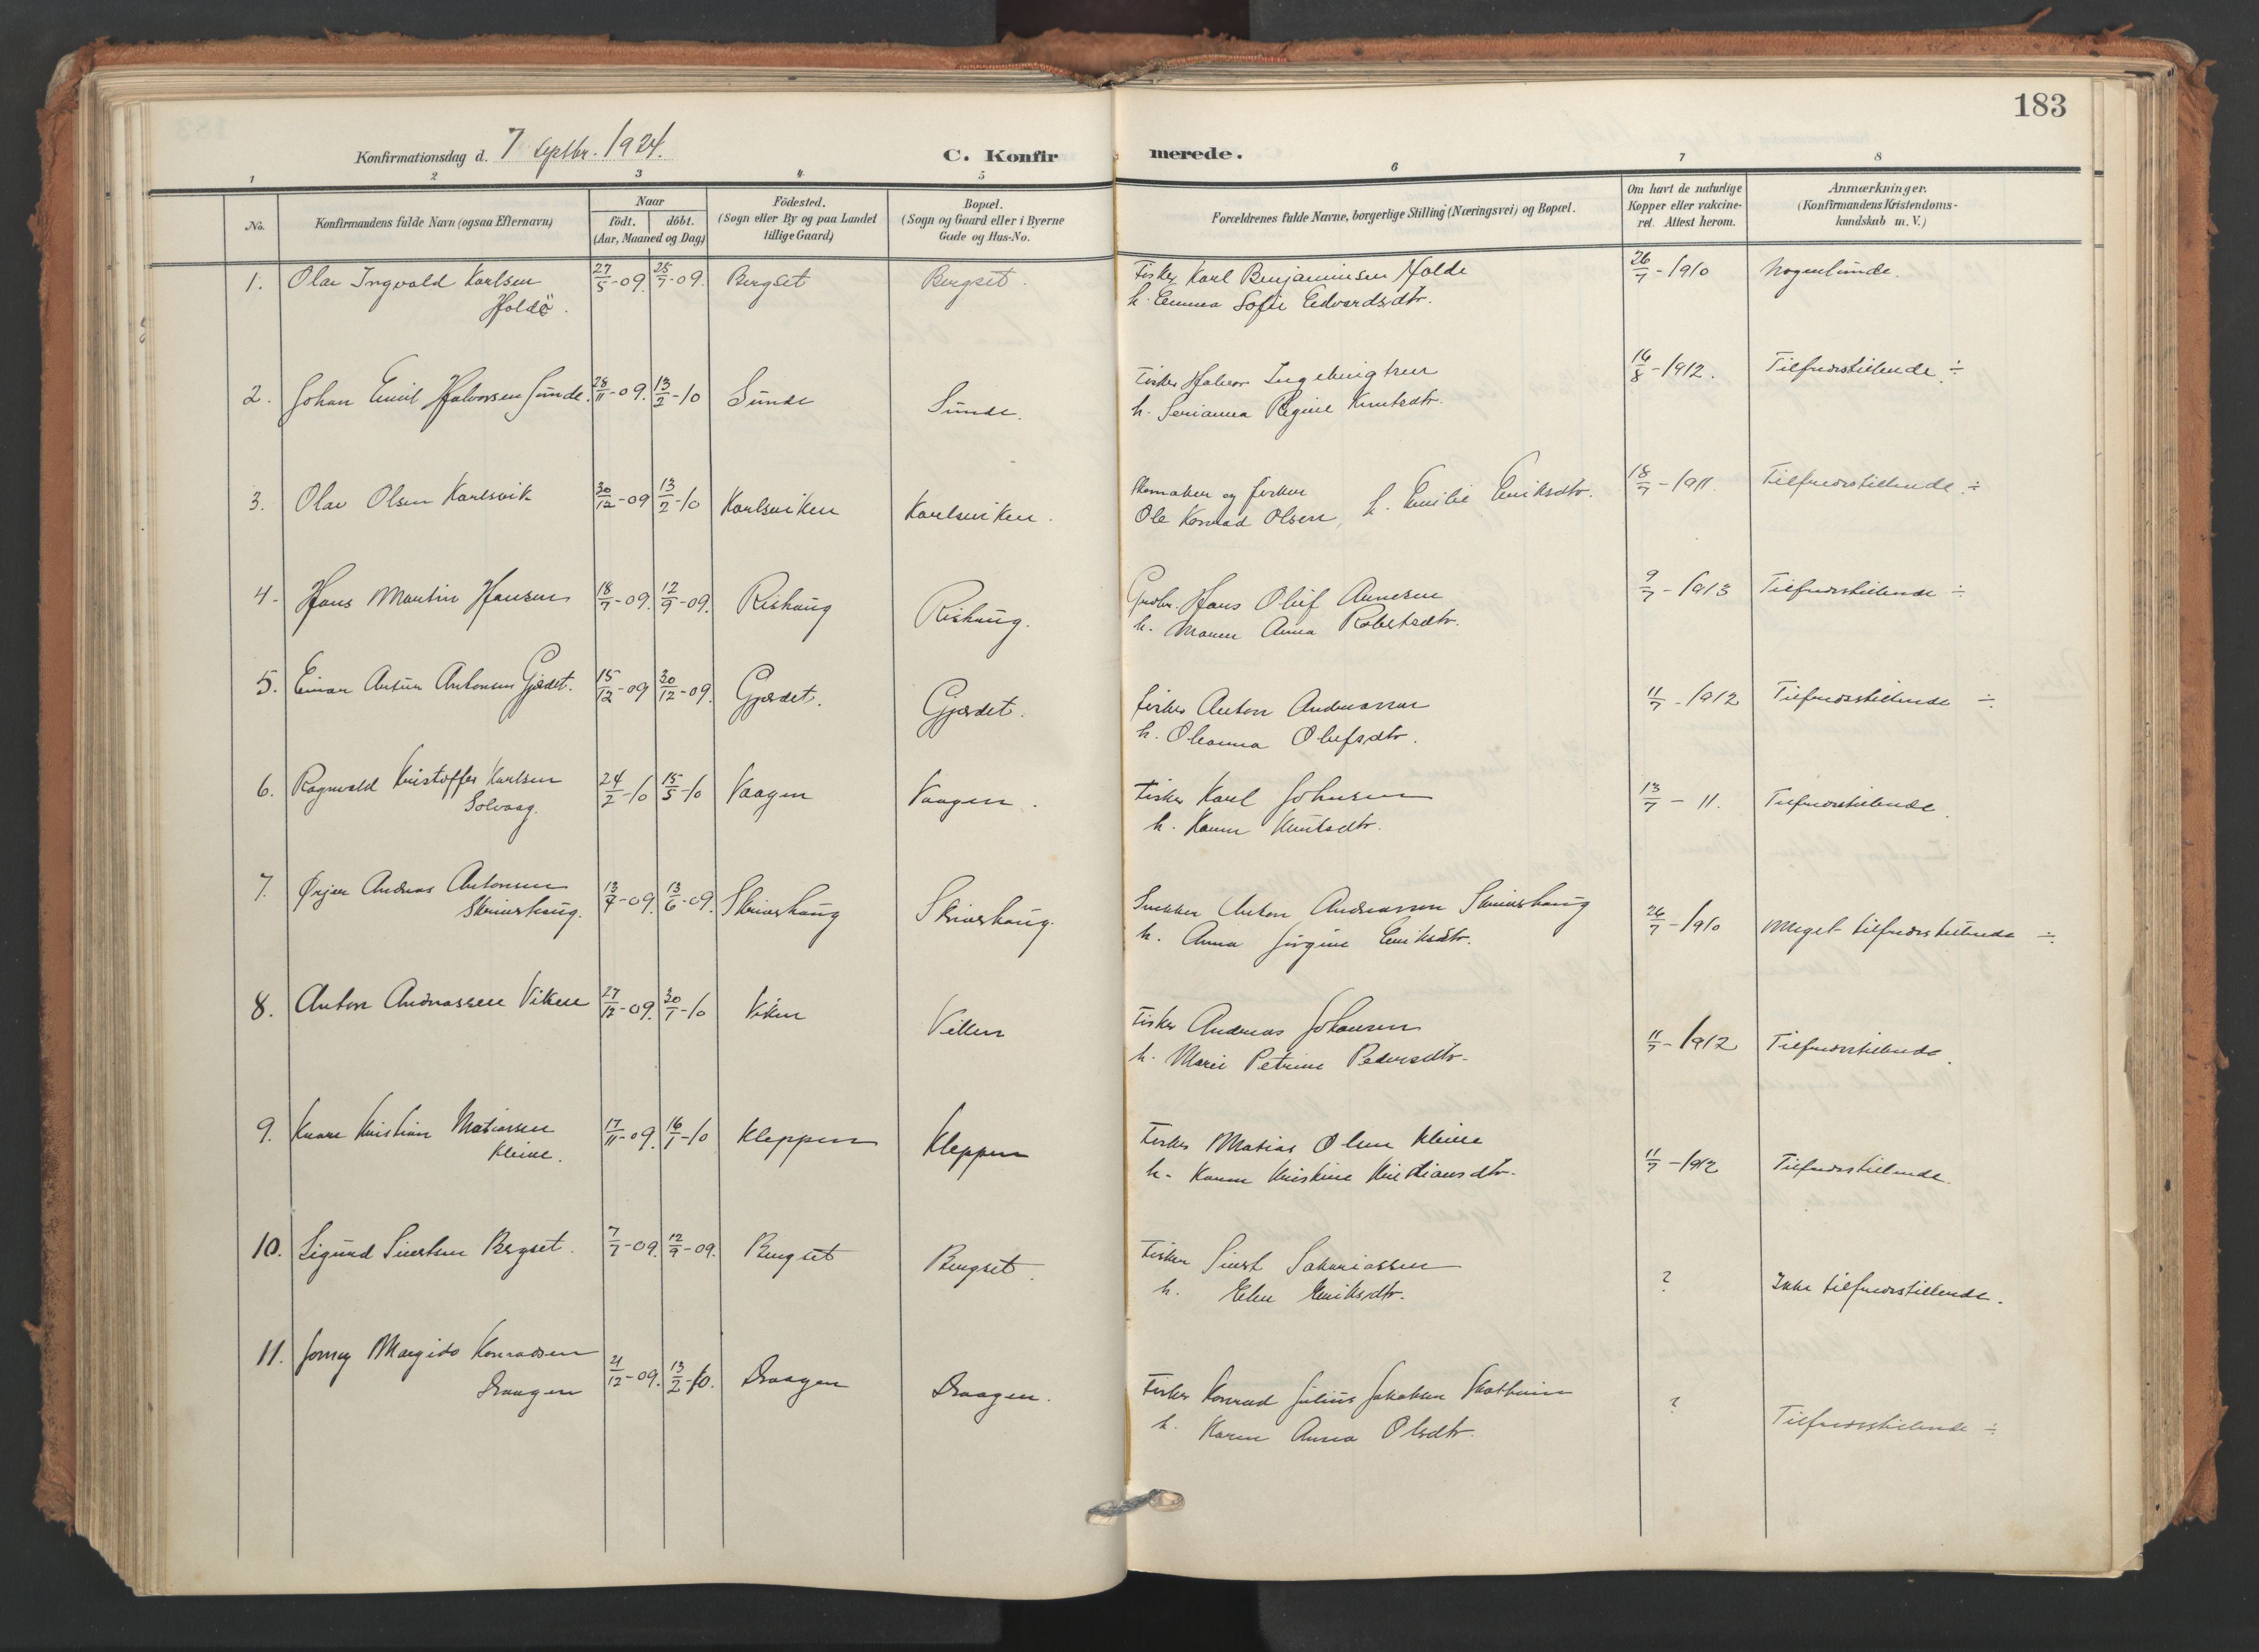 183
Konfirmationsdag d. 7 Septbr. 1924.
C. Konfirmerede.
1 2 3 4 5 6 7 8
No.
Konfirmandens fulde Navn (ogsaa Efternavn)
Naar
födt. döbt.
(Aar, Maaned og Dag)
Födested.
(Sogn eller By og paa Landet
tillige Gaard)
Bopæl.
(Sogn og Gaard eller i Byerne
Gade og Hus-No.
Forældrenes fulde Navne, borgerlige Stilling (Næringsvei) og Bopæl.
Om havt de naturlige
Kopper eller vakcine-
ret. Attest herom.
Anmærkninger.
(Konfirmandens Kristendoms-
kundskab m. V.)
1. Olav Ingvald Karlsen 27/5-09. 25/7-09. Bergset Bergset. Fisker Karl Benjaminsen Holdø 26/7-1910 Nogenlunde.
Holdö. h. Emma Sofie Edvardsdtr.
2. Johan Emil Halvorsen Sunde. 28/11-09. 13/2-10 Sunde Sunde. Fisker Halvor Ingebrigtsen 16/8-1912. Tilfredsstillende ÷
h. Serianna Regine Knutsdtr.
3. Olav Olsen Karlsvik 30/12-09 13/2-10 Karlsviken Karlsviken. Skomaker og fisker 18/7-1911. Tilfredsstillende ÷
Ole Konrad Olsen, h. Emilie Eriksdtr.
4. Hans Martin Hansen 18/7-09. 12/9-09. Rishaug Rishaug. Grdbr. Hans Oluf Arnesen 9/7-1913 Tilfredsstillende ÷
h. Maren Anna Robertsdtr.
5. Einar Antun Antonsen Gjædet. 15/12-09 30/12-09. Gjærdet. Gjærdet. fisker Anton Andreassen 11/7-1912 Tilfredsstillende ÷
h. Oleanna Olufsdtr.
6. Ragnvald Kristoffer Karlsen 24/2-10 15/5-10 Vaagen Vaagen. Fisker Karl Johnsen 13/7-11. Tilfredsstillende.
Solvaag. h. Karen Knutsdtr.
7. Ørjan Andreas Antonsen 13/4-09. 13/6-09. Skrivarhaug Skrivarhaug. Snekker Anton Andreassen Skrivarhaug 26/7-1910 Meget tilfredsstillende ÷
Skrivarhaug. h. Anna Jørgine Eriksdtr.
8. Anton Andreassen Viken 27/12-09. 30/1-10 Viken Viken Fisker Andreas Johansen 11/7-1912 Tilfredsstillende.
h. Marie Petrine Pedersdtr.
9. Kristian Matiassen 17/11-09. 16/1-10 Kleppen Kleppen Fisker Matias Olsen Kleive 11/7-1912 Tilfredsstillende.
Kleive. h. Karen Kristine Kristiansdtr.
10. Sigurd Sivertsen Bergset. 7/7-09. 12/9-09. Bergset Bergset. Fisker Sivert Sakariassen ? Ikke tilfredsstillende.
h. Elen Eriksdtr.
11. Margido Konradsen 21/12-09. 13/2-10. Draagen Draagen. Fisker Konrad Julius Jakobsen ? Tilfredsstillende ÷
Draagen h. Karen Anna Olsdtr.